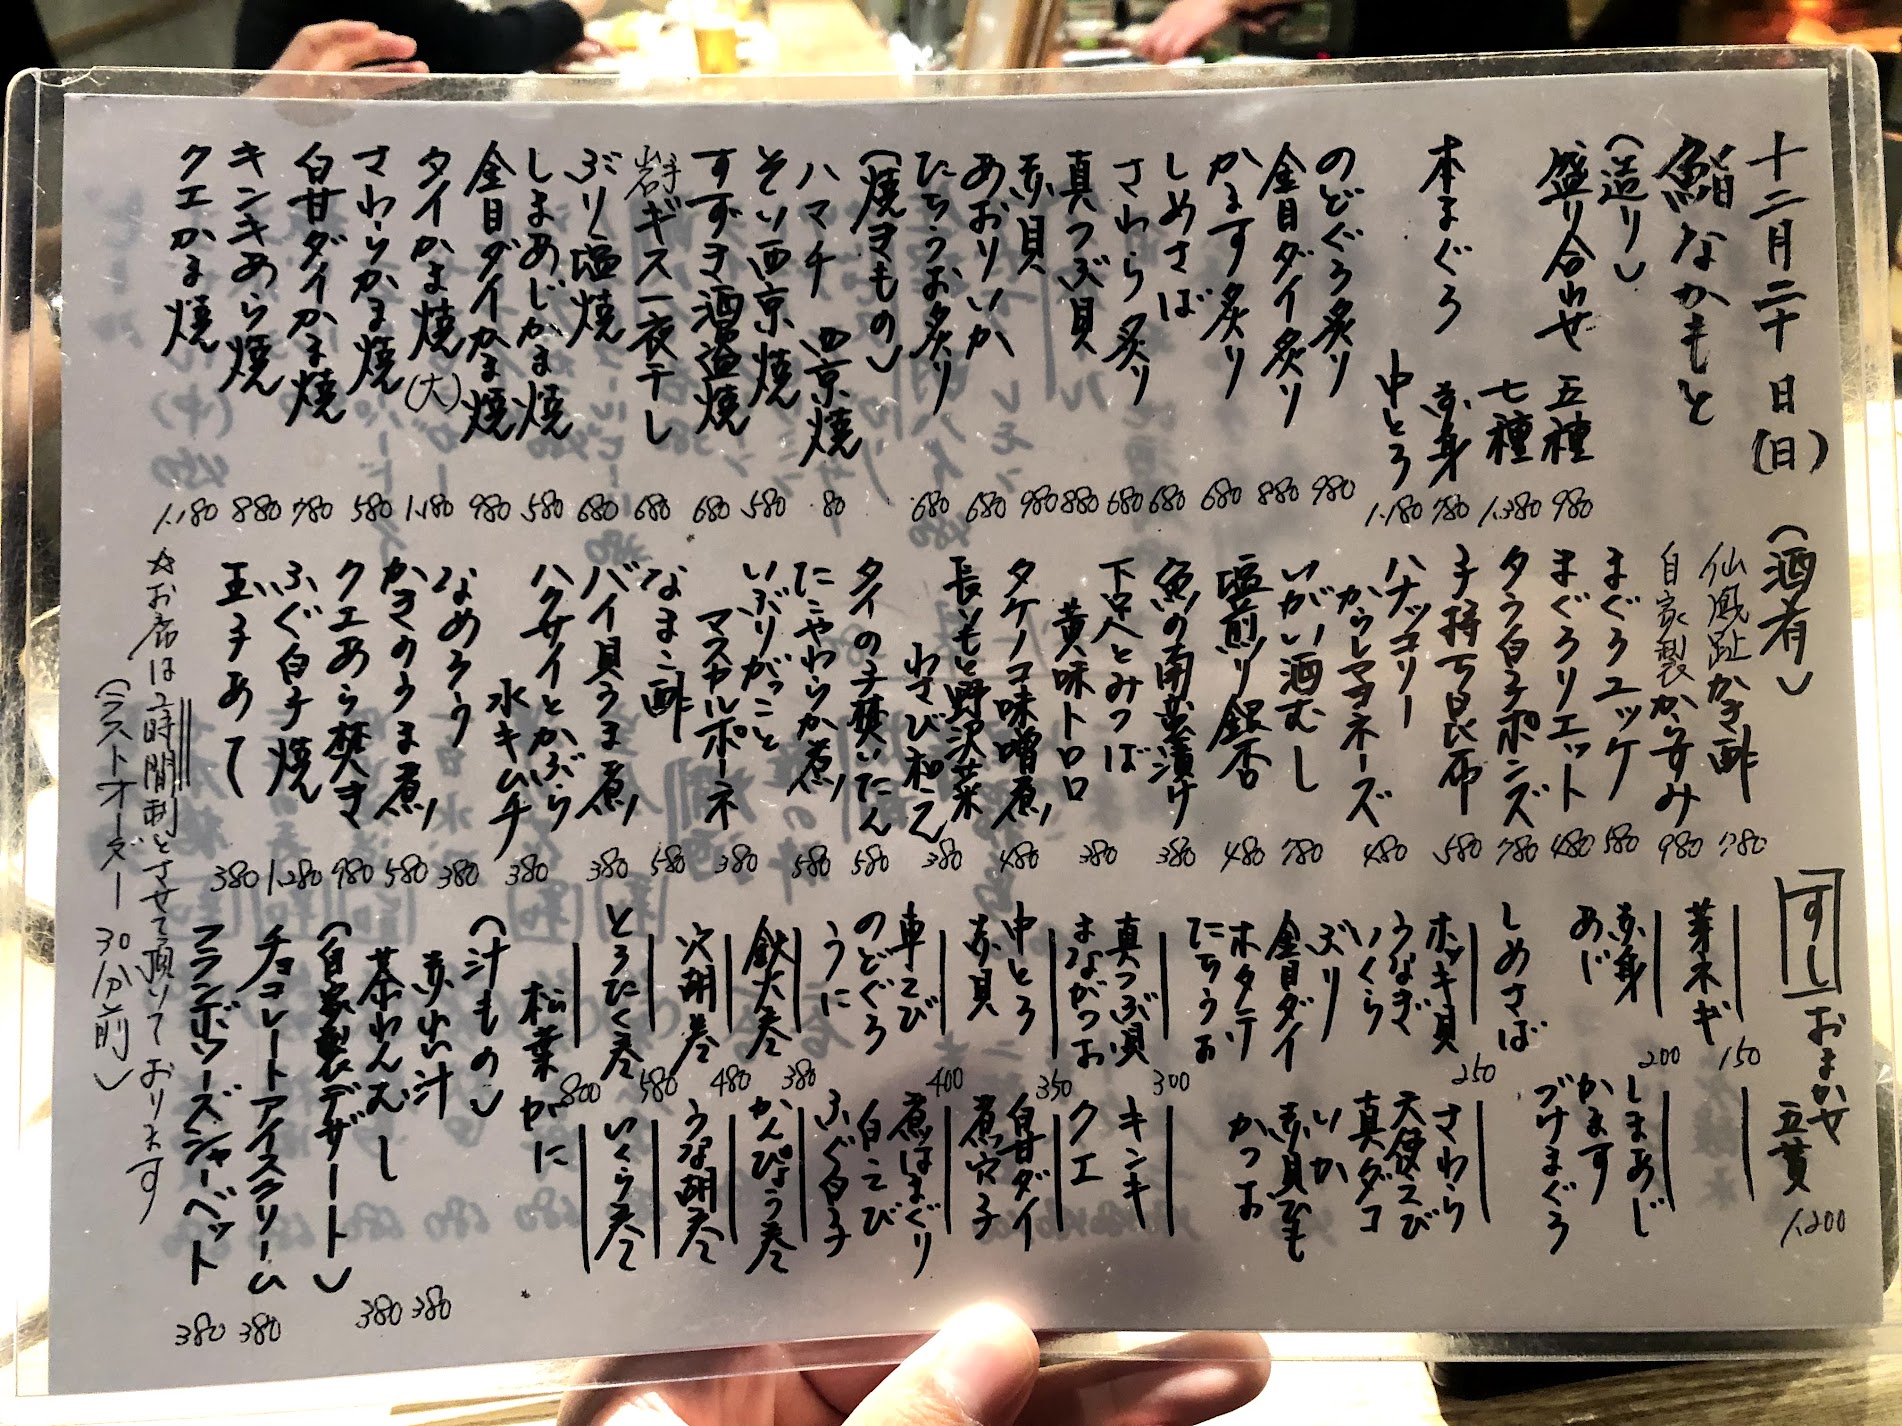 十二月二十日(日)
鮨なかもと
(造り)
盛り合わせ 五種 980
七種 1.380
本まぐろ 赤身 780
中とろ 1.180
のどぐろ炙り 980
金目ダイ炙り 880
かます炙り 680
しめさば 680
さわら炙り 680
真つぶ貝 880
赤貝 980
あおりいか 680
たちうお炙り 680
(焼きもの)
ハマチ西京焼 80
そい西京焼 580
すずき酒盗焼 680
岩手ギス一夜干し 680
ぶり塩焼 680
しまあじかま焼 580
金目ダイかま焼 980
タイかま焼(大) 1.180
さわらかま焼 580
白甘ダイかま焼 780
キンキあら焼 880
クエかま焼 1.180
(酒肴)
仙鳳趾かき酢 780
自家製からすみ 980
まぐろユッケ 580
まぐろリエット 480
タラ白子ポンズ 780
子持ち昆布 580
ハナッコリー
からしマヨネーズ 480
いがい酒むし 780
塩煎り銀杏 480
魚の南蛮漬け 380
下足とみつば
黄味トロロ 380
タケノコ味噌煮 480
長いもと野沢菜
わさび和え 380
タイの子焚いたん 580
たこやわらか煮 580
いぶりがっこと
マスカルポーネ 380
なまこ酢 580
バイ貝うま煮 380
ハクサイとかぶら
水キムチ 380
なめろう 380
かきのうま煮 580
クエあら焚き 980
ふぐ白子焼 1.280
玉子あて 380
☆お席は2時間制とさせて頂いております
(ラストオーダー 30分前)
すし おまかせ 五貫 1.200
芽ネギ 150
赤身 しまあじ 200
あじ かます
しめさば づけまぐろ
ホッキ貝 さわら 250
うなぎ 天使えび
いくら 真ダコ
ぶり いか
金目ダイ 赤貝ひも
ホタテ かつお
たちうお
真つぶ貝 キンキ 300
まながつお クエ
中とろ 白甘ダイ 350
赤貝 煮穴子
車えび 煮はまぐり 400
のどぐろ 白えび
うに ふぐ白子
鉄火巻 かんぴょう巻 380
穴胡巻 うな胡巻 480
とろたく巻 いくら巻 580
松葉がに 800
(汁もの)
赤出汁 380
茶わんむし 380
(自家製デザート)
チョコレートアイスクリーム 380
フランボワーズシャーベット 380